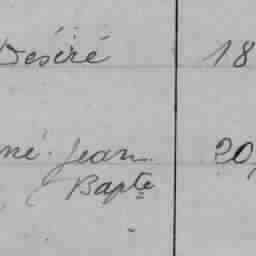 Désiré 18
né. Jean 20,
Bapte